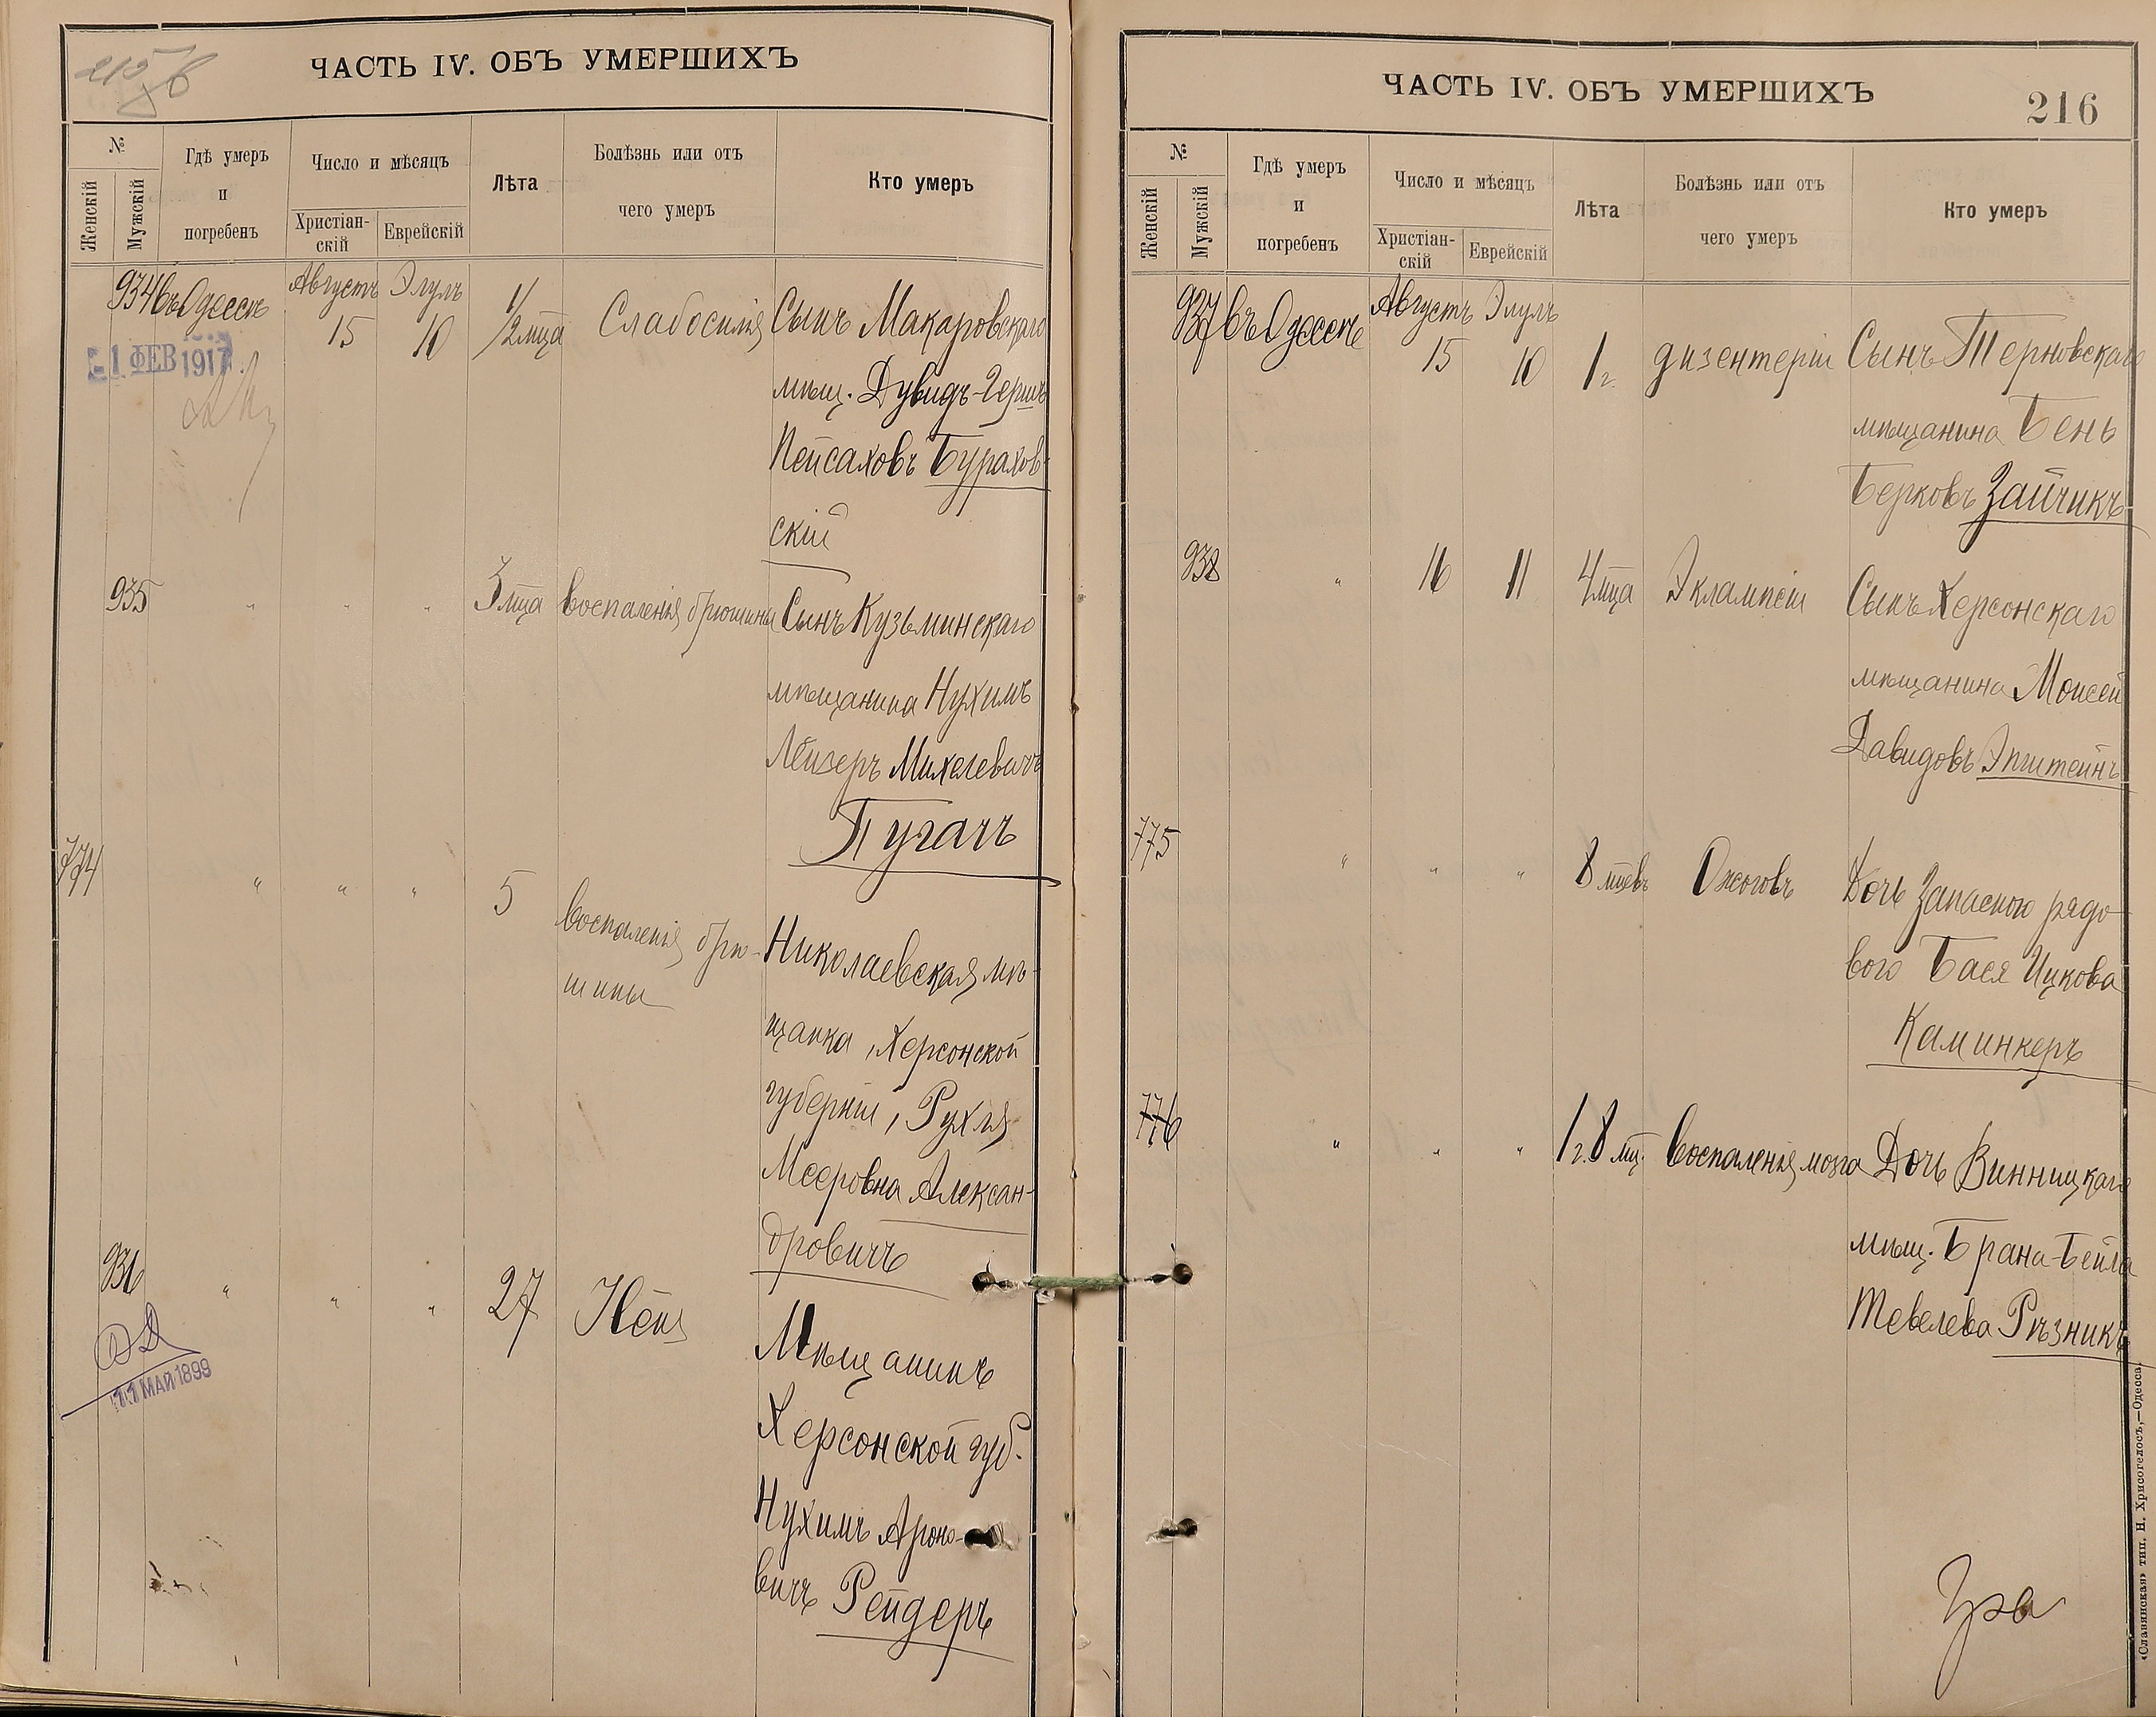 215 б
ЧАСТЬ IV. ОБЪ УМЕРШИХЪ
№
Женскій
Мужскій
Гдѣ умеръ
и
погребенъ
Число и мѣсяцъ
Христіан-
скій
Еврейскій
Лѣта
Болѣзнь или отъ
чего умеръ
Кто умеръ
934 въ Одессѣ Августъ 15 Элулъ 10 1/2 мца Слабосилія Сынъ Макаровскаго
-1 ФЕВ 1917
мѣщ. Дувидъ-Гершъ
Пейсаховъ Бурахов-
скій
935 " " " 3 мца воспаленія брюшины Сынъ Кузьминскаго
мѣщанина Нухимъ
Лейзеръ Михелевичъ
Пугачъ
774 " " " 5 воспаленія брю-
шины
Николаевская мѣ-
щанка, Херсонской
губерніи, Рухля
Мееровна Алексан-
дровичъ
936 " " " 27
11 МАЙ 1899
Мѣщанинъ
Херсонской губ.
Нухимъ Ароно-
вичъ Рейдеръ
ЧАСТЬ IV. ОБЪ УМЕРШИХЪ
216
№
Женскій
Мужскій
Гдѣ умеръ
и
погребенъ
Число и мѣсяцъ
Христіан-
скій
Еврейскій
Лѣта
Болѣзнь или отъ
чего умеръ
Кто умеръ
937 въ Одессѣ Августъ 15 Элулъ 10 1 г. дизентеріи Сынъ Терновскаго
мѣщанина Бень
Берковъ Зайчикъ
938 " 16 11 4 мца Эклампсіи Сынъ Херсонскаго
мѣщанина Моисей
Давидовъ Эпштейнъ
775 " " " 8 мцевъ Ожоговъ Дочь Запасного рядо-
вого Бася Ицкова
Каминкеръ
776 " " " 1 г. 8 мц. воспаленія мозга Дочь Винницкаго
мѣщ. Брана-Бейла
Тевелева Рѣзникъ
«Славянская» тип. Н. Хрисогелосъ,—Одесса.